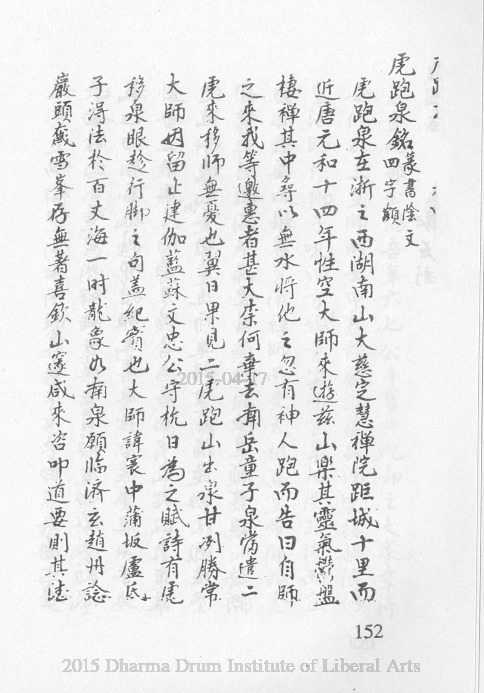 虎跑泉銘 篆書陰文四字額
虎跑泉在浙之西湖南山大慈定慧禪院距城十里而
近唐元和十四年性空大師來遊茲山樂其靈氣欝盤
棲禪其中尋以無水將他之忽有神人跪而告曰自師
之來我等邀惠者甚大柰何棄去南岳童子泉當遣二
虎來移師無憂也翼日果見二虎跑山出泉甘冽勝常
大師因留止建伽藍蘇文忠公守杭日為之賦詩有虎
移泉眼趂行脚之句盖紀實也大師諱寰中蒲坂盧氏
子得法於百丈海一时龍象如南泉願臨济玄趙州諗
巖頭奯雪峯存無著喜欽山邃咸來咨叩道要則其法
152
2015-04-17
2015 Dharma Drum Institute of Liberal Arts